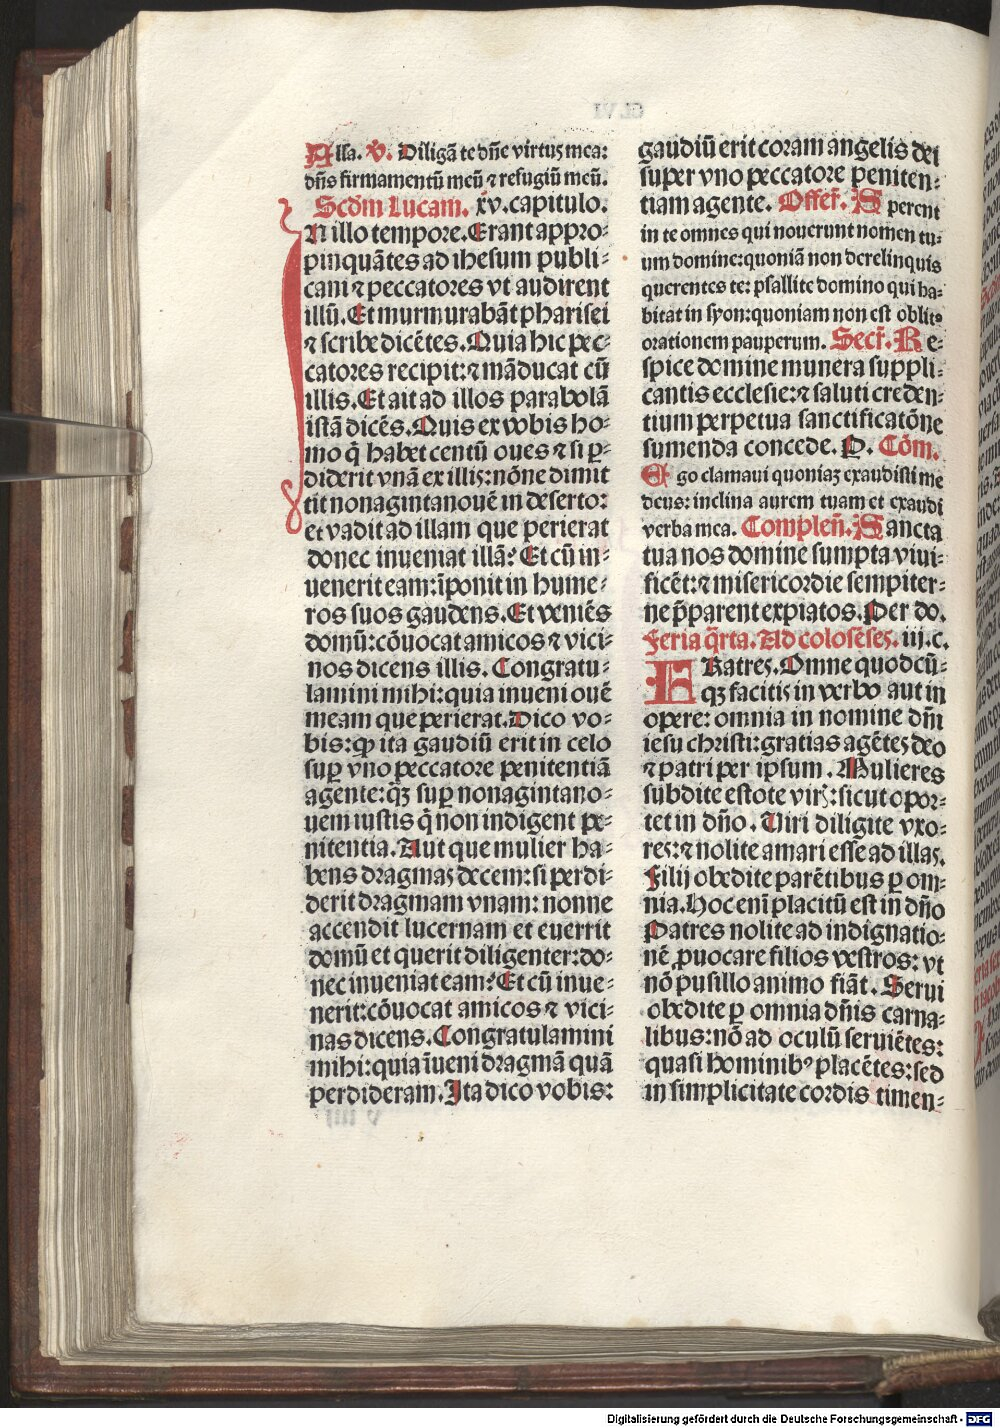 Alla. v̄. Diligā te dñe virtꝰ mea:
dñs firmamentū meū ⁊ refugiū meū.
Scd̄m Lucam. xv. capitulo.
IN illo tempore. Erant appro⸗
pinquātes ad ihesum publi⸗
cani ⁊ peccatores vt audirent
illū. Et murmurabāt pharisei
⁊ scribe dicētes. Quia hic pec⸗
catores recipit: ⁊ māducat cū
illis. Et ait ad illos parabolā
istā dicēs. Quis ex vobis ho⸗
mo q̄ habet centū oues ⁊ si ꝑ⸗
diderit vnā ex illis: nōne dimit
tit nonagintanouē in deserto:
et vadit ad illam que perierat
donec inueniat illā? Et cū in⸗
uenerit eam: īponit in hume⸗
ros suos gaudens. Et veniēs
domū: cōuocat amicos ⁊ vici⸗
nos dicens illis. Congratu⸗
lamini mihi: quia inueni ouē
meam que perierat. Dico vo⸗
bis: ꝙ ita gaudiū erit in celo
suꝑ vno peccatore penitentiā
agente: qꝫ suꝑ nonagintano⸗
uem iustis q̄ non indigent pe⸗
nitentia. Aut que mulier ha⸗
bens dragmas decem: si perdi⸗
derit dragmam vnam: nonne
accendit lucernam et euerrit
domū et querit diligenter: do⸗
nec inueniat eam? Et cū inue⸗
nerit: cōuocat amicos ⁊ vici⸗
nas dicens. Congratulamini
mihi: quia īueni dragmā quā
perdideram. Ita dico vobis:
gaudiū erit coram angelis dei
super vno peccatore peniten⸗
tiam agente. Offer̄. Sperent
in te omnes qui nouerunt nomen tu⸗
um domine: quoniā non derelinquis
querentes te: psallite domino qui ha⸗
bitat in syon: quoniam non est oblitꝰ
orationem pauperum. Secr̄. Re⸗
spice domine munera suppli⸗
cantis ecclesie: ⁊ saluti creden⸗
tium perpetua sanctificatōne
sumenda concede. P. Cōm.
Ego clamaui quoniaꝫ exaudisti me
deus: inclina aurem tuam et exaudi
verba mea. Compleñ. Sancta
tua nos domine sumpta viui⸗
ficēt: ⁊ misericordie sempiter⸗
ne p̄parent expiatos. Per do.
Feria q̄rta. Ad colosēses. iij. c.
FRatres. Omne quodcū⸗
qꝫ facitis in verbo aut in
opere: omnia in nomine dñi
iesu christi: gratias agētes deo
⁊ patri per ipsum. Mulieres
subdite estote virꝭ: sicut opor⸗
tet in dño. Uiri diligite vxo⸗
res: ⁊ nolite amari esse ad illas.
Filij obedite parētibus ꝑ om⸗
nia. Hoc enī placitū est in dño
Patres nolite ad indignatio⸗
nē ꝓuocare filios vestros: vt
nō pusillo animo fiāt. Serui
obedite ꝑ omnia dñis carna⸗
libus: nō ad oculū seruiētes:
quasi hominibꝰ placētes: sed
in simplicitate cordis timen⸗
Digitalisierung gefördert durch die Deutsche Forschungsgemeinschaft - DFG